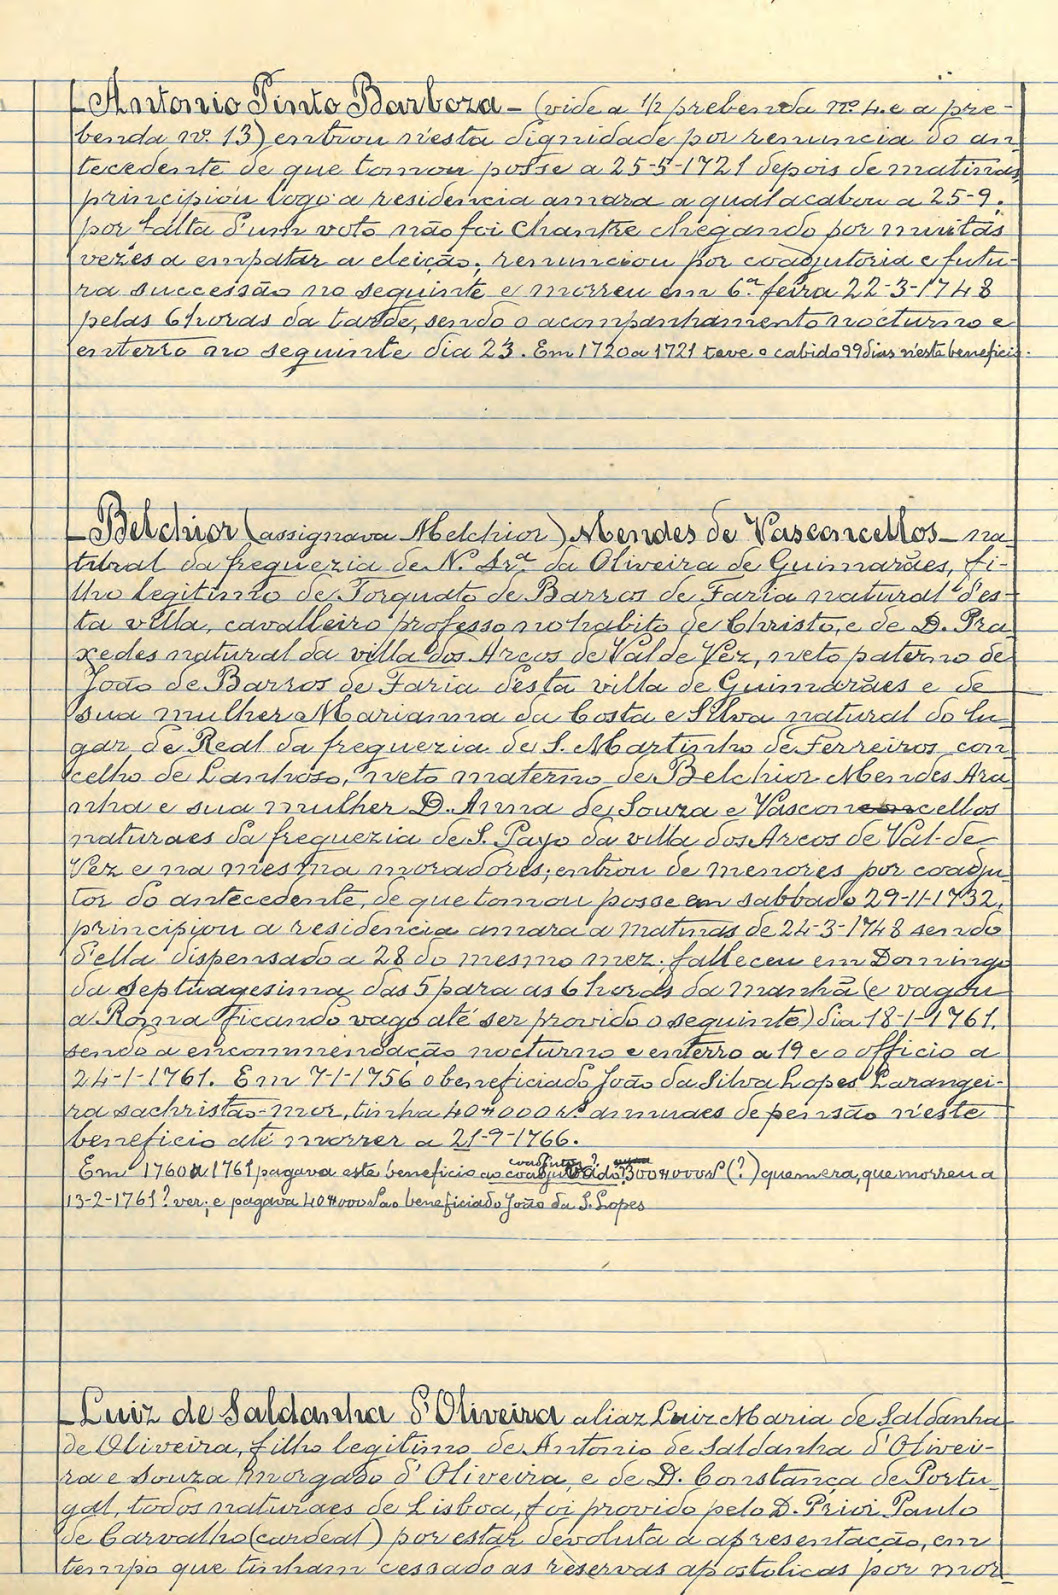 Antonio Pinto Barboza – (vide a 1/2 prebenda nº 4. e a pre-
benda nº. 13) entrou n'esta dignidade por renuncia do an-
tecedente de que tomou posse a 25-5-1721 depois de matinas,
principiou logo a residencia amara a qual acabou a 25-9.
por falta d'um voto não foi Chantre chegando por muitas
vezes a empatar a eleição; renunciou por coadjutoria e futu-
ra successão no seguinte e morreu em 6.ª feira 22-3-1748
pelas 6 horas da tarde, sendo o acompanhamento nocturno e
enterro no seguinte dia 23. Em 1720 a 1721 teve o cabido 99 dias n'este beneficio.
Belchior (assignava Melchior) Mendes de Vasconcellos – na-
tural da freguezia de N. Srª. da Oliveira de Guimarães, fi-
lho legitimo de Torquato de Barros de Faria natural d'es-
ta villa, cavalleiro professo no habito de Christo, e de D. Pra-
xedes natural da villa dos Arcos de Val de Vez, neto paterno de
João de Barros de Faria desta villa de Guimarães e de
sua mulher Marianna da Costa e Silva natural do lu-
gar de Real da freguezia de S. Martinho de Ferreiros, con-
celho de Lanhoso, neto materno de Belchior Mendes Ara-
nha e sua mulher D. Anna de Souza e Vasconcellos
naturaes da freguezia de S. Payo da villa dos Arcos de Val-de-
Vez e na mesma moradores; entrou de menores por coadju-
tor do antecedente, de que tomou posse em sabbado 29-11-1732,
principiou a residencia amara a matinas de 24-3-1748 sendo
d'ella dispensado a 28 do mesmo mez. falleceu em Domingo
da Septuagesima das 5 para as 6 horas da manhã (e vagou
a Roma ficando vago até ser provido o seguinte) dia 18-1-1761.
sendo a encommendação nocturno e enterro a 19 e o officio a
24-1-1761. Em 7-1-1756 o beneficiado João da Silva Lopes Larangei-
ra sachristão-mor, tinha 40#000 rs. annuaes de pensão n'este
beneficio até morrer a 21-9-1766.
coadjutor?
Em 1760 a 1761 pagava este beneficio ao 300#000 (?) quem era, que morreu a
13-2-1761? ver; e pagava 40#000 ao beneficiado João da S. Lopes
Luiz de Saldanha d'Oliveira aliaz Luiz Maria de Saldanha
de Oliveira, filho legitimo de Antonio de Saldanha d'Olivei-
ra e Souza morgado d'Oliveira, e de D. Constança de Portu-
gal, todos naturaes de Lisboa, foi provido pelo D. Prior Paulo
de Carvalho (cardeal) por estar devoluta a apresentação, em
tempo que tinham cessado as reservas apostolicas por mor-